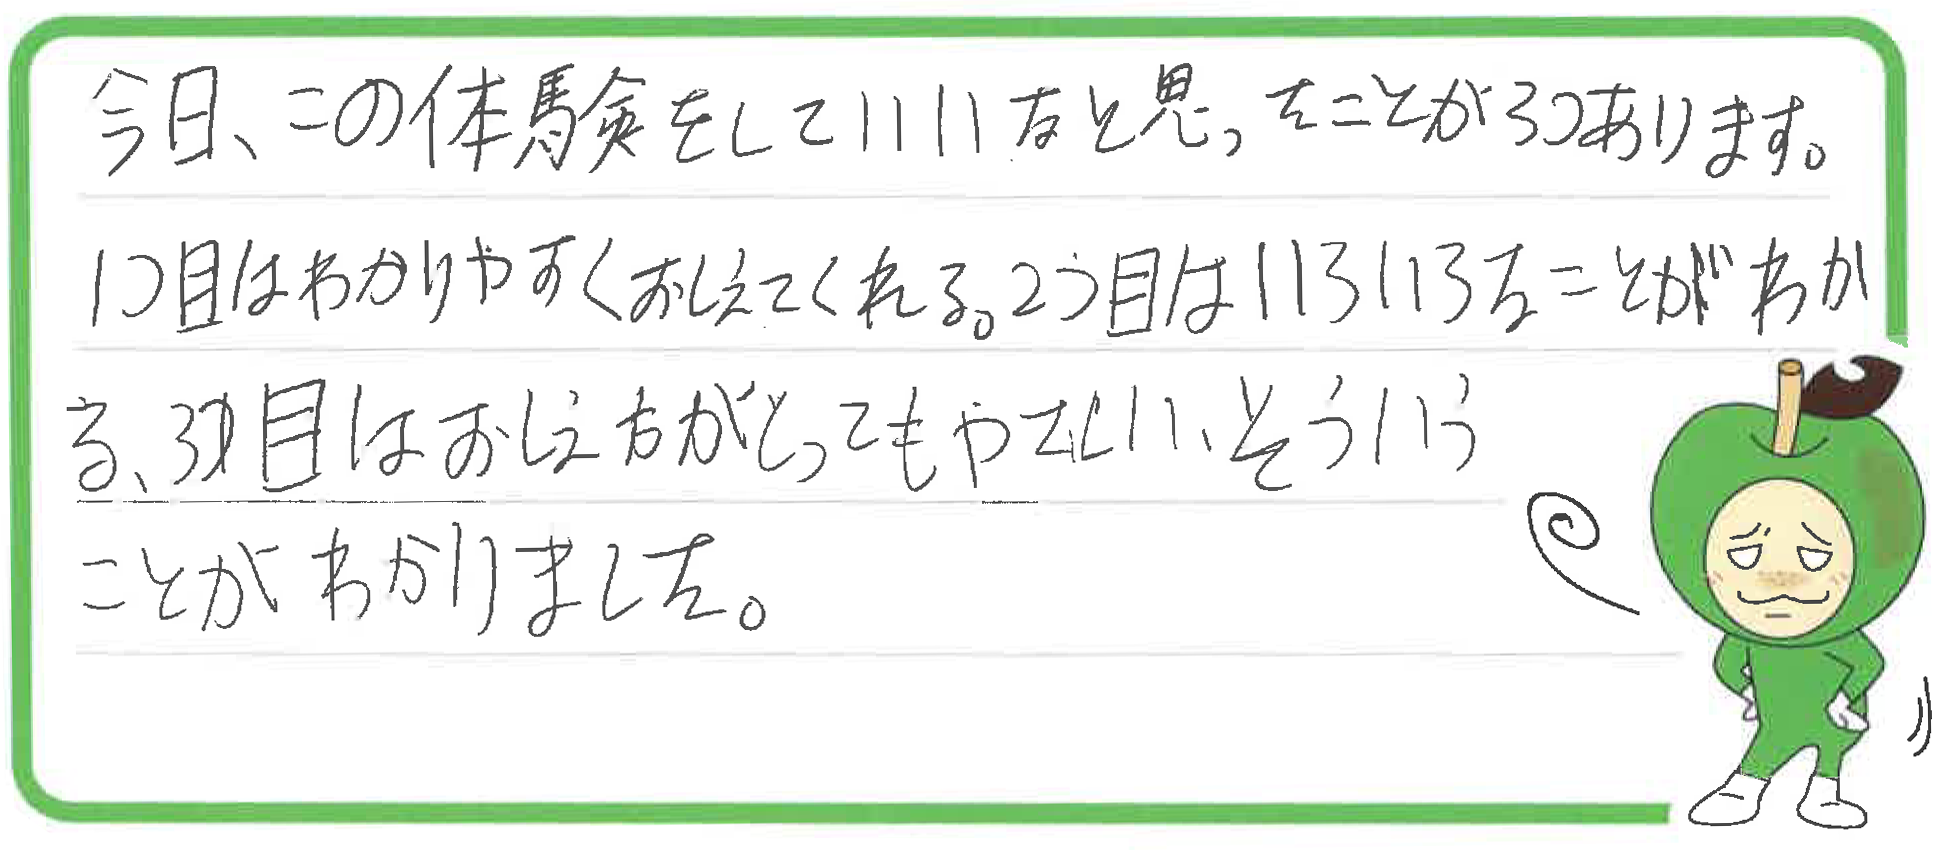 今日、この体験をしていいなと思ったことが3つあります。
1つ目はわかりやすくおしえてくれる。2つ目はいろいろなことがわか
る、3つ目はおしえ方がとってもやさしい、そういう
ことがわかりました。